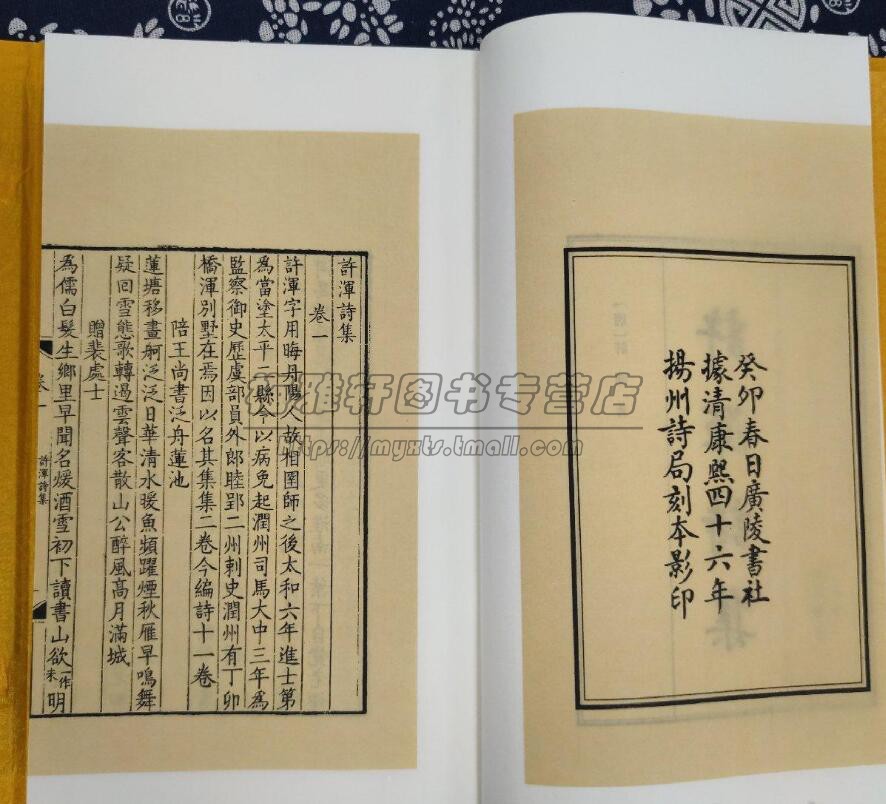 癸卯春日廣陵書社
據清康熙四十六年
揚州詩局刻本影印
許渾詩集
卷一
許渾字用晦丹陽人故相圉師之後太和六年進士第
為當塗太平二縣令以病免起潤州司馬大中三年為
監察御史歷虞部員外郎睦郢二州刺史潤州有丁卯
橋渾別墅在焉因以名其集集二卷今編詩十一卷
陪王尚書泛舟蓮池
蓮塘移畫舸泛泛日華清水暖魚頻躍煙秋雁早鳴舞
疑回雪態歌轉遏雲聲客散山公醉風高月滿城
贈裴處士
為儒白髮生鄉里早聞名煖酒雪初下讀書山欲一作未明
卷一
許渾詩集
雅轩图书专营店
https://myxts.tmall.com